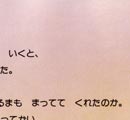 いくと、
た。
るまも　まってて　くれたのか。
ってかい